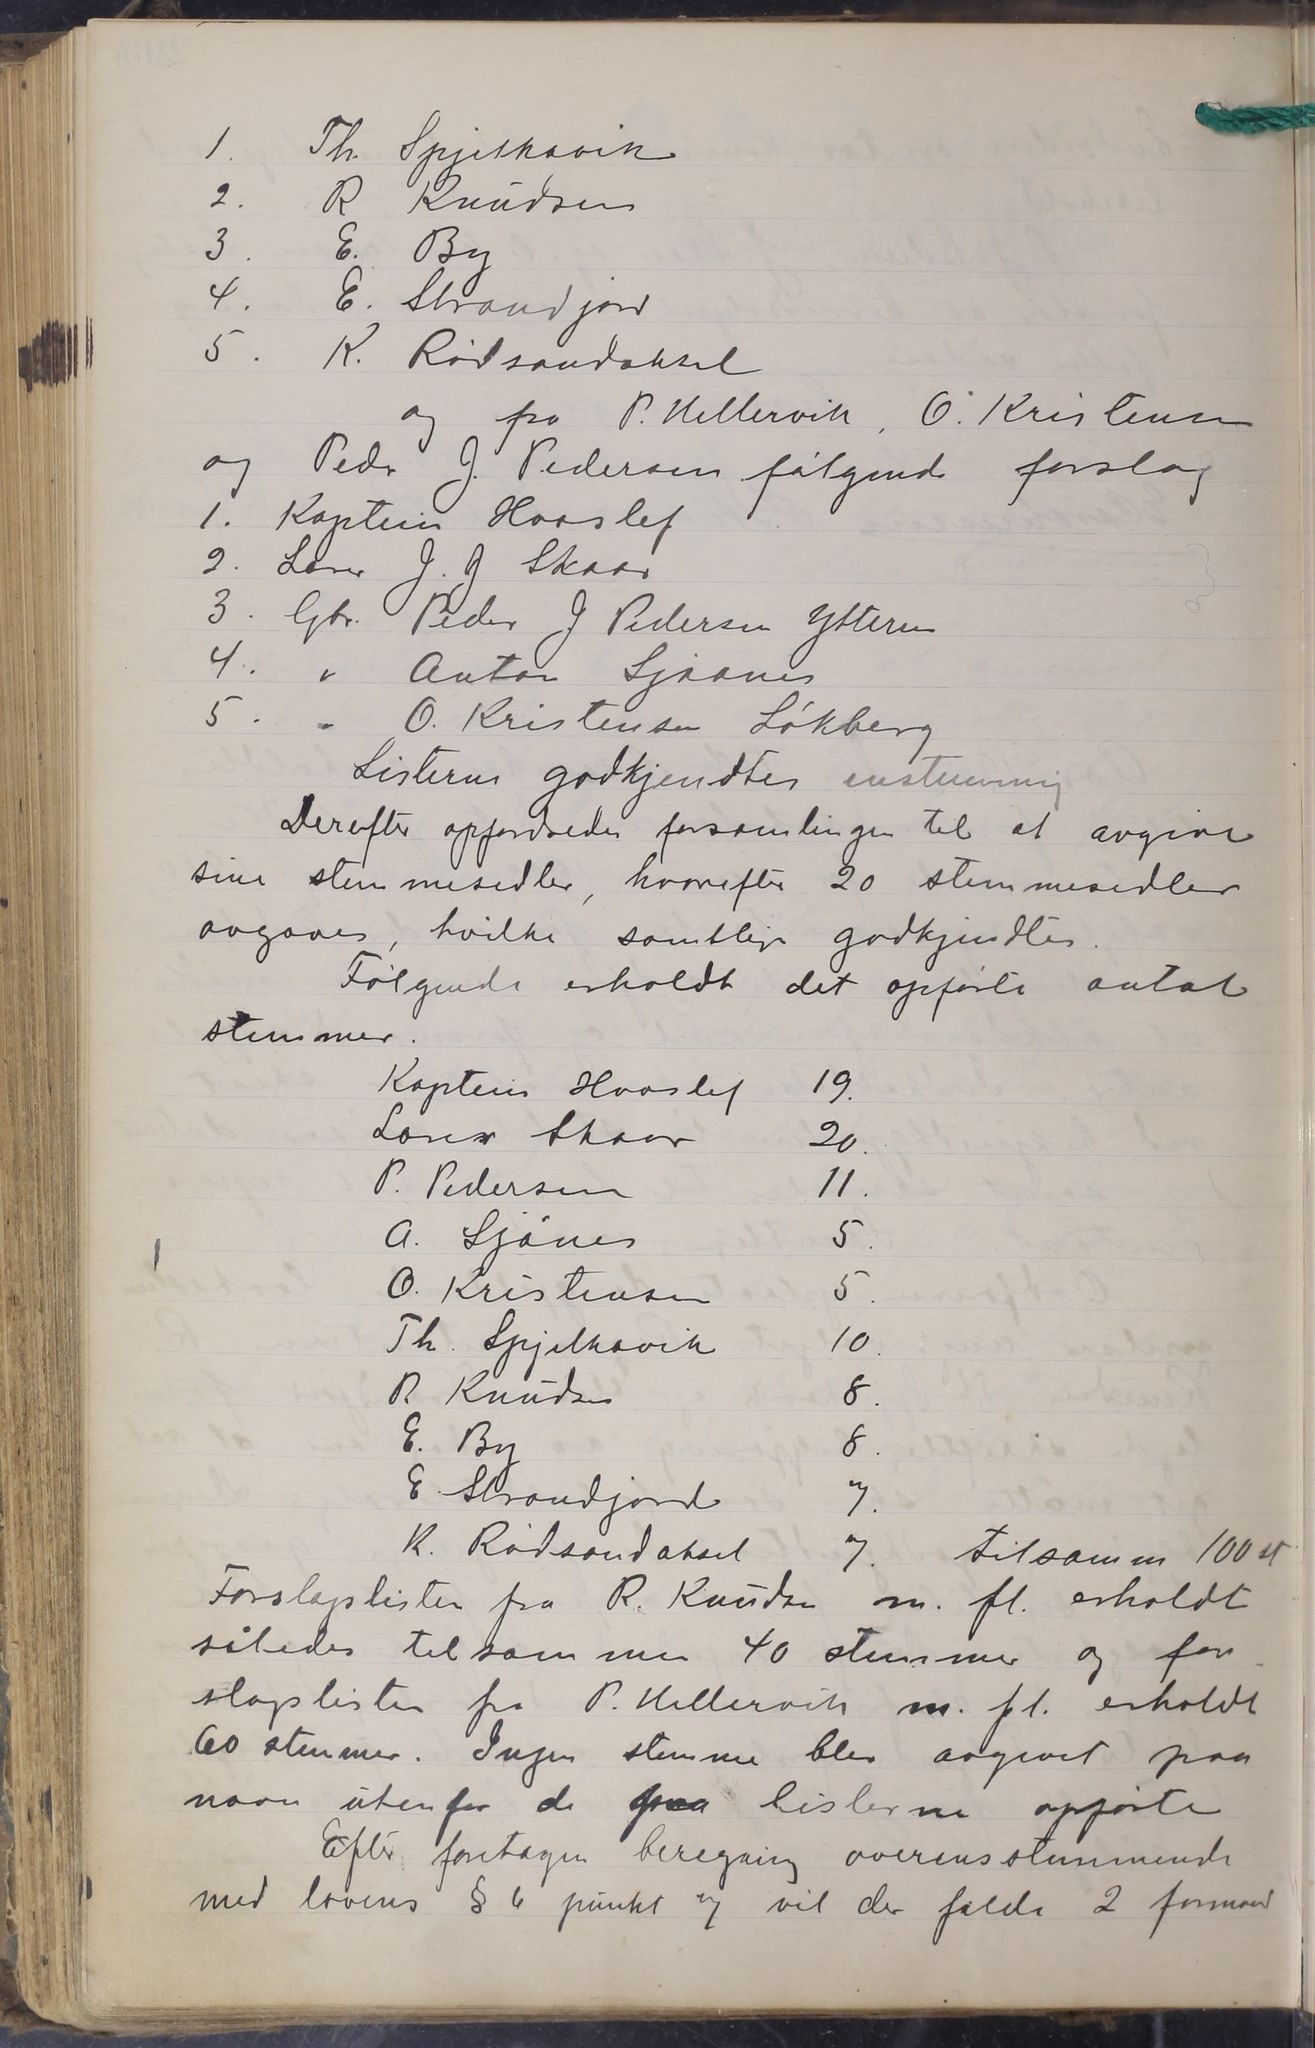 1. Th. Spjelkavik
2. R Knudsen
3. E. By
4. E. Strandjord
5. K. Rødsandaksel
og fra P. Hellervik, O. Kristensen
og Peder J. Pedersen følgende forslag
1. Kaptein Haaslef
2. Lærer J. J Skaar
3. Gbr. Peder J Pedersen Ytteren
4. " Anton Sjaanes
5. " O. Kristensen Løkberg
Listerne godkjendtes enstemmig
Derefter opfordredes forsamlingen til at avgive
sine stemmesedler, hvorefter 20 stemmesedler
avgaves, hvilke samtlige godkjendtes.
Følgende erholdt det opførte antal
stemmer.
Kaptein Haaslef 19.
Lærer Skaar 20.
P. Pedersen 11.
A. Sjånes 5.
O. Kristensen 5.
Th. Spjelkavik 10.
R Knudsen 8.
E. By 8.
E Strandjord 7.
K. Rødsandaksel 7. tilsamm 100 st
Forslagslisten fra R. Knudsen m. fl. erholdt
således tilsammen 40 stemmer og for
slagslisten fra P. Hellervik m. fl. erholdt
60 stemmer. Ingen stemme blev avgivet paa
navn utenfor de paa listerne opførte
Efter foretagen beregning overensstemmende
med lovens § 6 punkt 7 vil der falde 2 formænd